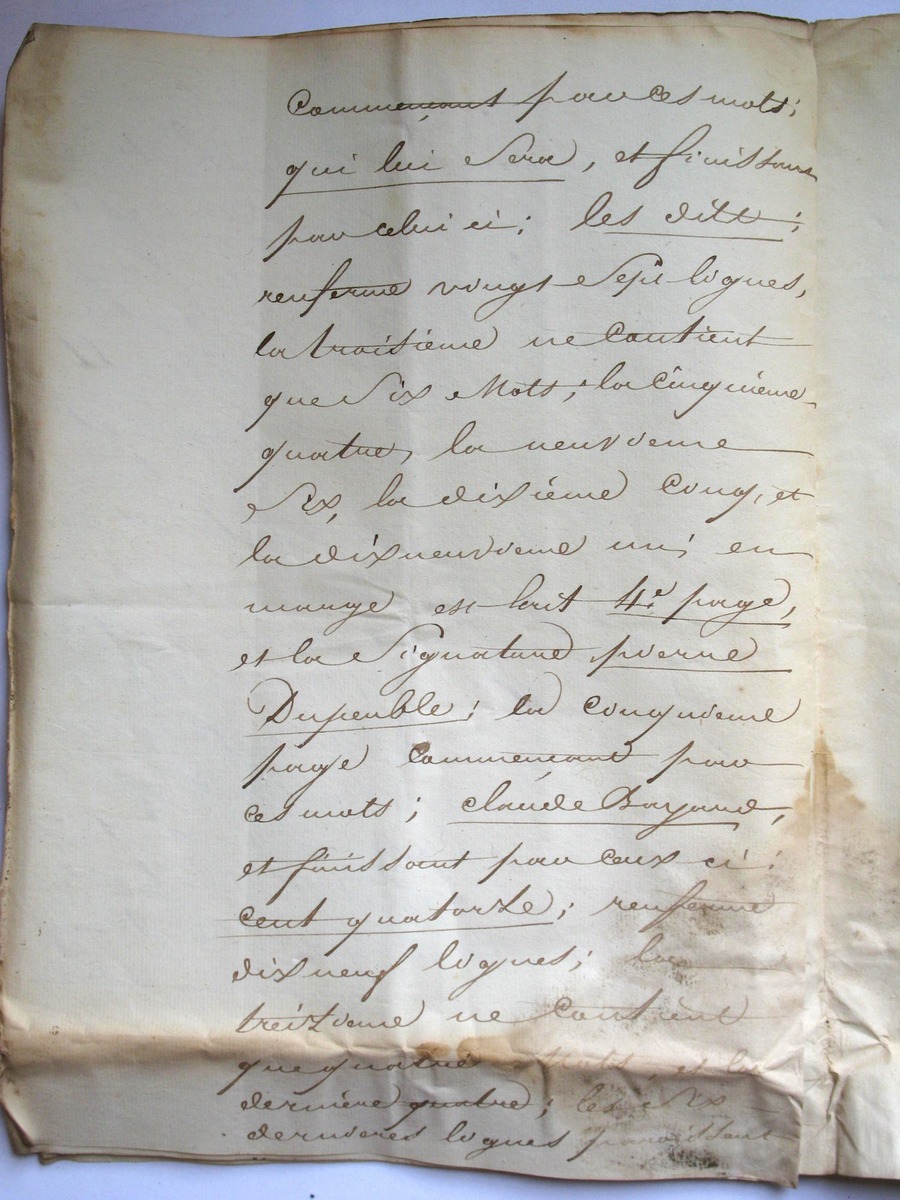 Commençant par ces mots;
qui lui sera, et finissant
par celui ci; les ditt;
renferme vingt sept lignes,
la troisieme ne contient
que six mots; la cinquieme
quatre, la neuvieme
six, la dixième cinq, et
la dixneuvieme un; en
marge est écrit 4e page,
et la signature pierre
Dupeuble; la cinquieme
page commençant par
ces mots; claude Bayard,
et finissant par ceux ci:
cent quatorze; renferme
dix neuf lignes; la
treizieme ne contient
que quatre mots, et la
derniere quatre; les six
dernieres lignes paroissent